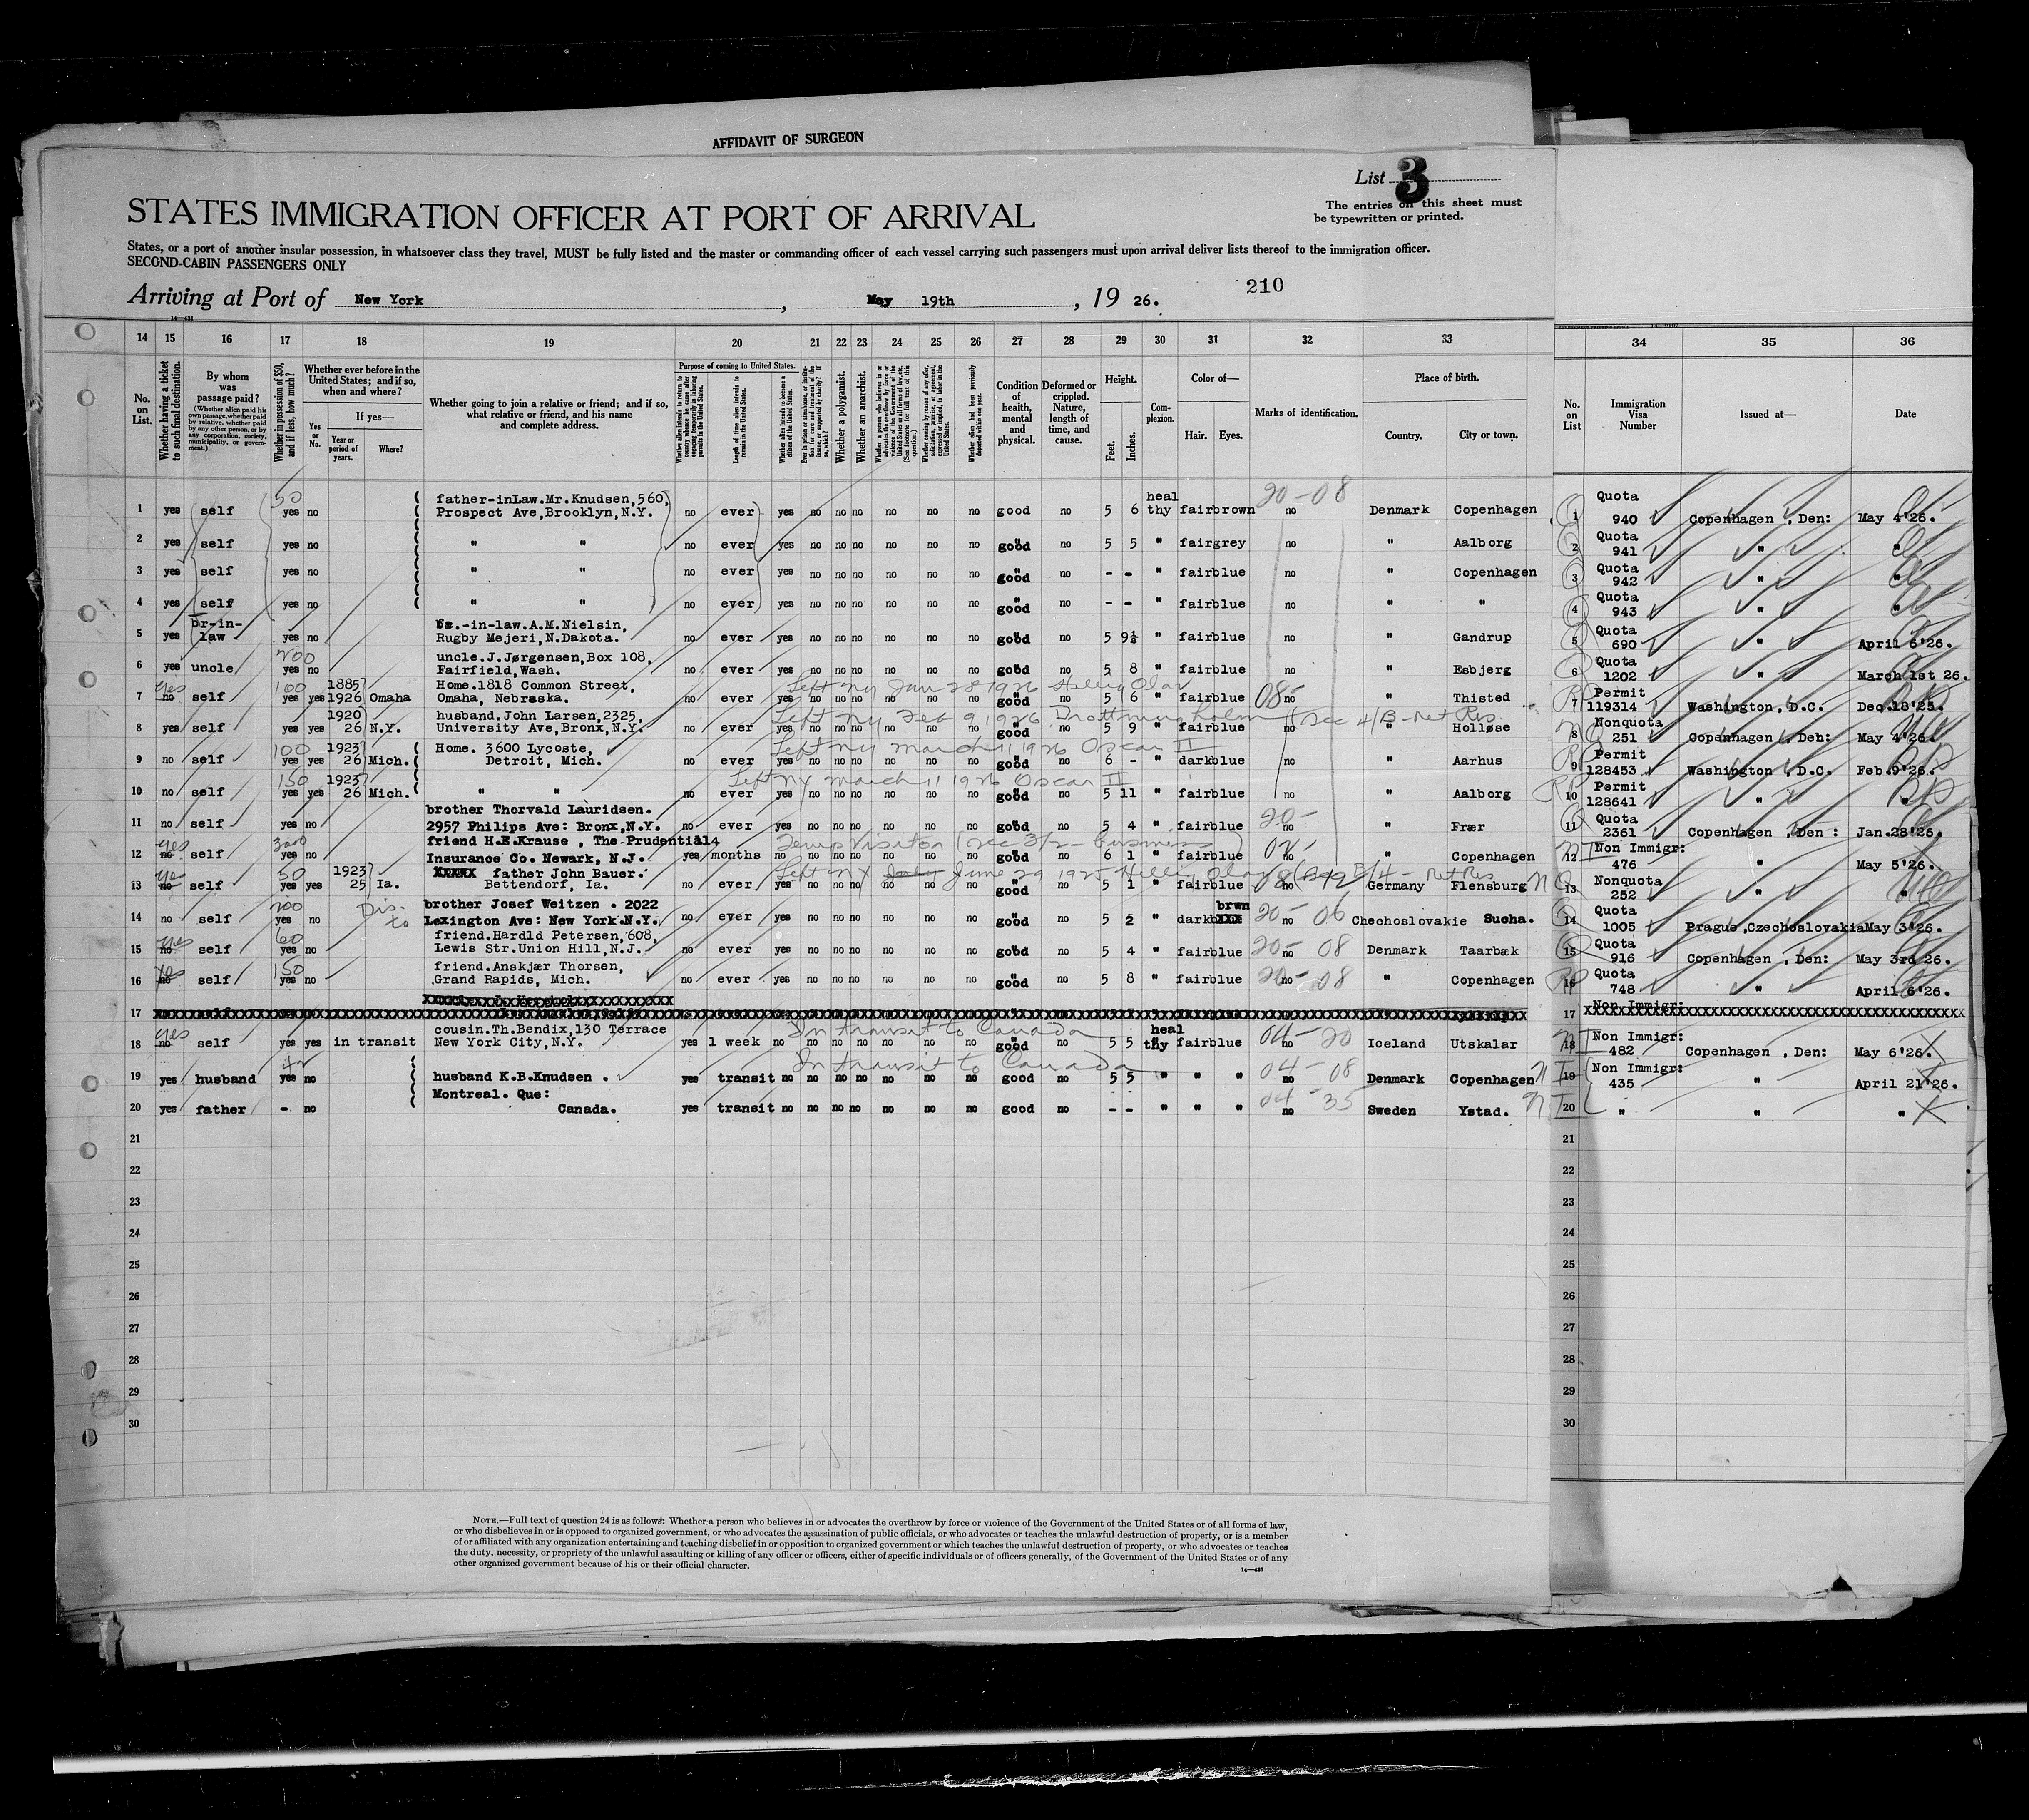 AFFIDAVIT OF SURGEON
List 3
STATES IMMIGRATION OFFICER AT PORT OF ARRIVAL
The entries on this sheet must
be typewritten or printed.
States, or a port of another insular possession, in whatsoever class they travel, MUST be fully listed and the master or commanding officer of each vessel carrying such passengers must upon arrival deliver lists thereof to the immigration officer.
SECOND-CABIN PASSENGERS ONLY
Arriving at Port of New York, May 19th, 19 26.
210
14 15 16 17 18 19 20 21 22 23 24 25 26 27 28 29 30 31 32 33 34 35 36
No. on List.
Whether having a ticket to such final destination.
By whom was passage paid?
(Whether alien paid his own passage, whether paid by relative, whether paid by any other person, or by any corporation, society, municipality, or government.)
Whether in possession of $50, and if less, how much?
Whether ever before in the United States; and if so, when and where?
Yes or No.
If yes—
Year or period of years.
Where?
Whether going to join a relative or friend; and if so, what relative or friend, and his name and complete address.
Purpose of coming to United States.
Length of time alien intends to remain in the United States.
Whether alien intends to become a citizen of the United States.
Whether a polygamist.
Whether an anarchist.
Condition of health, mental and physical.
Deformed or crippled. Nature, length of time, and cause.
Height.
Feet. Inches.
Complexion.
Color of—
Hair. Eyes.
Marks of identification.
Place of birth.
Country. City or town.
No. on List
Immigration Visa Number
Issued at—
Date
1 yes self 50 yes no father-inLaw.Mr.Knudsen,560, Prospect Ave,Brooklyn,N.Y. no ever yes no no no no no no good no 5 6 healthy fair brown 20-08 no Denmark Copenhagen 1 Quota 940 Copenhagen, Den: May 4'26.
2 yes self yes no " " no ever yes no no no no no no good no 5 5 " fair grey no " Aalborg 2 Quota 941 " "
3 yes self yes no " " no ever yes no no no no no no good no - - " fair blue no " Copenhagen 3 Quota 942 " "
4 yes self yes no " " no ever yes no no no no no no good no - - " fair blue no " " 4 Quota 943 " "
5 yes br-in-law yes no -in-law.A.M.Nielsin, Rugby Mejeri,N.Dakota. no ever yes no no no no no no good no 5 9½ " fair blue no " Gandrup 5 Quota 690 " April 6'26.
6 yes uncle 200 yes no uncle.J.Jørgensen,Box 108, Fairfield,Wash. no ever yes no no no no no no good no 5 8 " fair blue no " Esbjerg 6 Quota 1202 " March 1st 26.
7 yes no self 100 yes yes 1885 1926 Omaha Home.1818 Common Street, Omaha, Nebraska. Left NY Jan 28 1926 no ever yes no no no no no no good no 5 6 " fair blue 08- no " Thisted 7 Permit 119314 Washington, D.C. Dec.18'25.
8 yes self yes yes 1920 26 N.Y. husband.John Larsen,2325, University Ave,Bronx,N.Y. Left NY Feb 9, 1926 Drottningholm (Sec 4/B-Ret Res. no ever yes no no no no no no good no 5 9 " fair blue no " Holløse 8 Nonquota 251 Copenhagen, Den: May 4'26.
9 no self 100 yes yes 1923 26 Mich. Home. 3600 Lycoste, Detroit, Mich. Left NY March 11 1926 Oscar II no ever yes no no no no no no good no 6 - " dark blue no " Aarhus 9 Permit 128453 Washington, D.C. Feb.9'26.
10 no self 150 yes yes 1923 26 Mich. " " Left NY March 11 1926 Oscar II no ever yes no no no no no no good no 5 11 " fair blue no " Aalborg 10 Permit 128641 " "
11 no self yes no brother Thorvald Lauridsen. 2957 Philips Ave: Bronx,N.Y. no ever yes no no no no no no good no 5 4 " fair blue 20- no " Frær 11 Quota 2361 Copenhagen, Den: Jan.28'26.
12 yes no self yes no friend H.E.Krause, The Prudential Insurance Co. Newark, N.J. Temp Visitor (Sec 3/2- business) yes 4 months no no no no no no no good no 6 1 " fair blue no " Copenhagen 12 Non Immigr: 476 " May 5'26.
13 yes no self 50 yes yes 1923 25 Ia. father John Bauer. Bettendorf, Ia. Left NY July June 29 1925 no ever yes no no no no no no good no 5 1 " fair blue no Germany Flensburg 13 Nonquota 252 " "
14 no self 200 yes no brother Josef Weitzen. 2022 Lexington Ave: New York N.Y. no ever yes no no no no no no good no 5 2 " dark brwn 20-06 no Chechoslovakie Sucha. 14 Quota 1005 Prague,Czechoslovakia May 3'26.
15 yes no self 60 yes no friend.Hardld Petersen,608, Lewis Str.Union Hill,N.J. no ever yes no no no no no no good no 5 4 " fair blue 20-08 no Denmark Taarbæk 15 Quota 916 Copenhagen, Den: May 3rd 26.
16 yes no self 150 yes no friend.Anskjær Thorsen, Grand Rapids, Mich. no ever yes no no no no no no good no 5 8 " fair blue 20-08 no " Copenhagen 16 Quota 748 " April 6'26.
17 17 Non Immigr:
18 yes no self yes yes in transit cousin.Th.Bendix,130 Terrace New York City,N.Y. In transit to Canada yes 1 week no no no no no no no good no 5 5 healthy fair blue 04-20 no Iceland Utskalar 18 Non Immigr: 482 Copenhagen, Den: May 6'26.
19 yes husband yes no husband K.B.Knudsen. In transit to Canada yes transit no no no no no no no good no 5 5 " " " 04-08 no Denmark Copenhagen 19 Non Immigr: 435 " April 21'26.
20 yes father - no Montreal. Que: Canada. yes transit no no no no no no no good no - - " " " 04-35 no Sweden Ystad. 20 " " "
21 21
22 22
23 23
24 24
25 25
26 26
27 27
28 28
29 29
30 30
NOTE.—Full text of question 24 is as follows: Whether a person who believes in or advocates the overthrow by force or violence of the Government of the United States or of all forms of law,
or who disbelieves in or is opposed to organized government, or who advocates the assassination of public officials, or who advocates or teaches the unlawful destruction of property, or is a member
of or affiliated with any organization entertaining and teaching disbelief in or opposition to organized government or which teaches the unlawful destruction of property, or who advocates or teaches
the duty, necessity, or propriety of the unlawful assaulting or killing of any officer or officers, either of specific individuals or of officers generally, of the Government of the United States or of any
other organized government because of his or their official character.
14—431